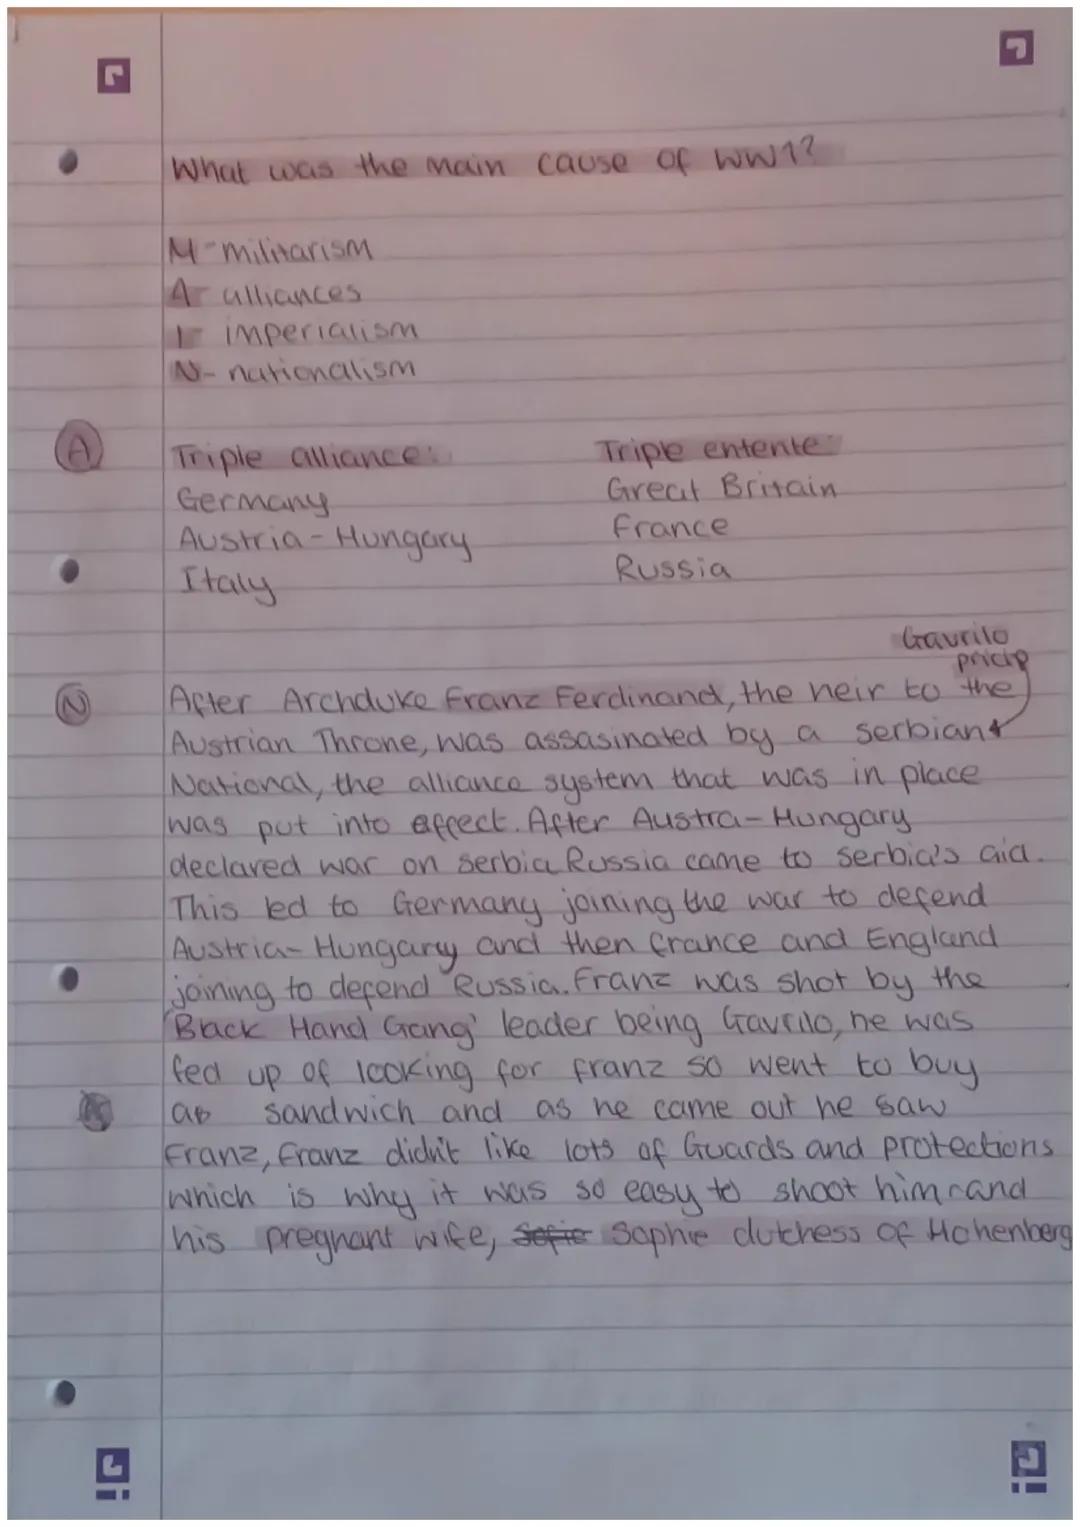 What was the main cause of WW1?
M-militarism
A- alliances
I- imperialism
N- nationalism
A
Triple alliance:
Germany
Austria-Hungary
Italy
Triple entente:
Great Britain
France
Russia
Gavrilo
pricip
N
After Archduke Franz Ferdinand, the heir to the
Austrian Throne, was assasinated by a Serbian
National, the alliance system that was in place
was put into effect. After Austra-Hungary
declared war on Serbia Russia came to Serbia's aid.
This led to Germany joining the war to defend
Austria-Hungary and then France and England
joining to defend Russia. Franz was shot by the
'Black Hand Gang' leader being Gavrilo, he was
fed up of looking for franz so went to buy
a sandwich and as he came out he saw
Franz, Franz didn't like lots of Guards and protections
which is why it was so easy to shoot him and
his pregnant wife, Sofie Sophie dutchess of Hohenberg